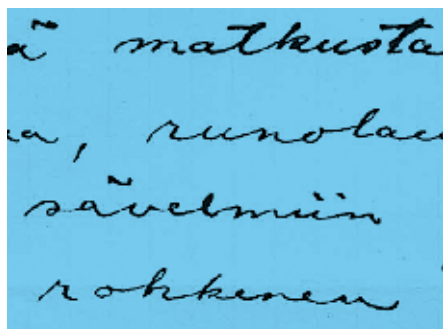 ä matkusta
aa, runolau
sävelmiin
rohkenen